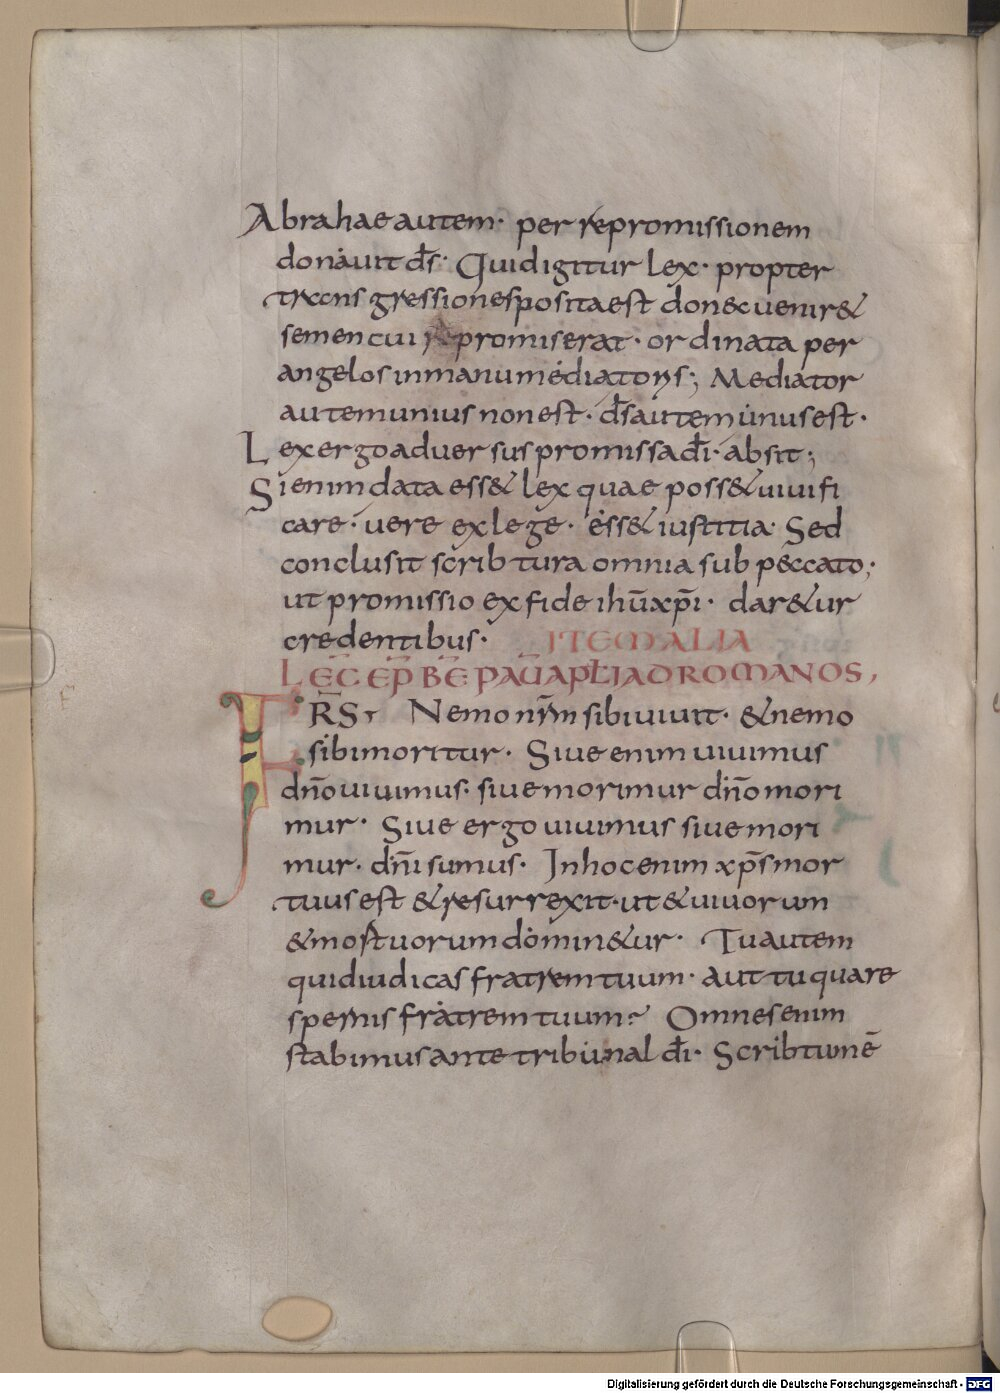 Abrahae autem· per repromissionem
donauit d̄s· Quid igitur lex· propter
transgressiones posita est donec uenir&
semen cui repromiserat· ordinata per
angelos in manu mediatoris; Mediator
autem unius non est· d̄s autem unus est·
Lex ergo aduersus promissa d̄i· absit;
Si enim data ess& lex quae poss& uiuifi
care· uere ex lege· ess& iustitia· Sed
conclusit scribtura omnia sub peccato;
ut promissio ex fide ihū xp̄i· dar&ur
credentibus· ITEM ALIA
LEC̄ EP̄ BĒ PAŪ APT̄LI AD ROMANOS,
FR̄S· Nemo nr̄m sibi uiuit· & nemo
sibi moritur· Siue enim uiuimus
dn̄o uiuimus· siue morimur dn̄o mori
mur· Siue ergo uiuimus siue mori
mur· dn̄i sumus· In hoc enim xp̄s mor
tuus est & resurrexit· ut & uiuorum
& mortuorum domin&ur· Tu autem
quid iudicas fratrem tuum· aut tu quare
spernis fratrem tuum? Omnes enim
stabimus ante tribunal d̄i· Scribtum ē
Digitalisierung gefördert durch die Deutsche Forschungsgemeinschaft - DFG